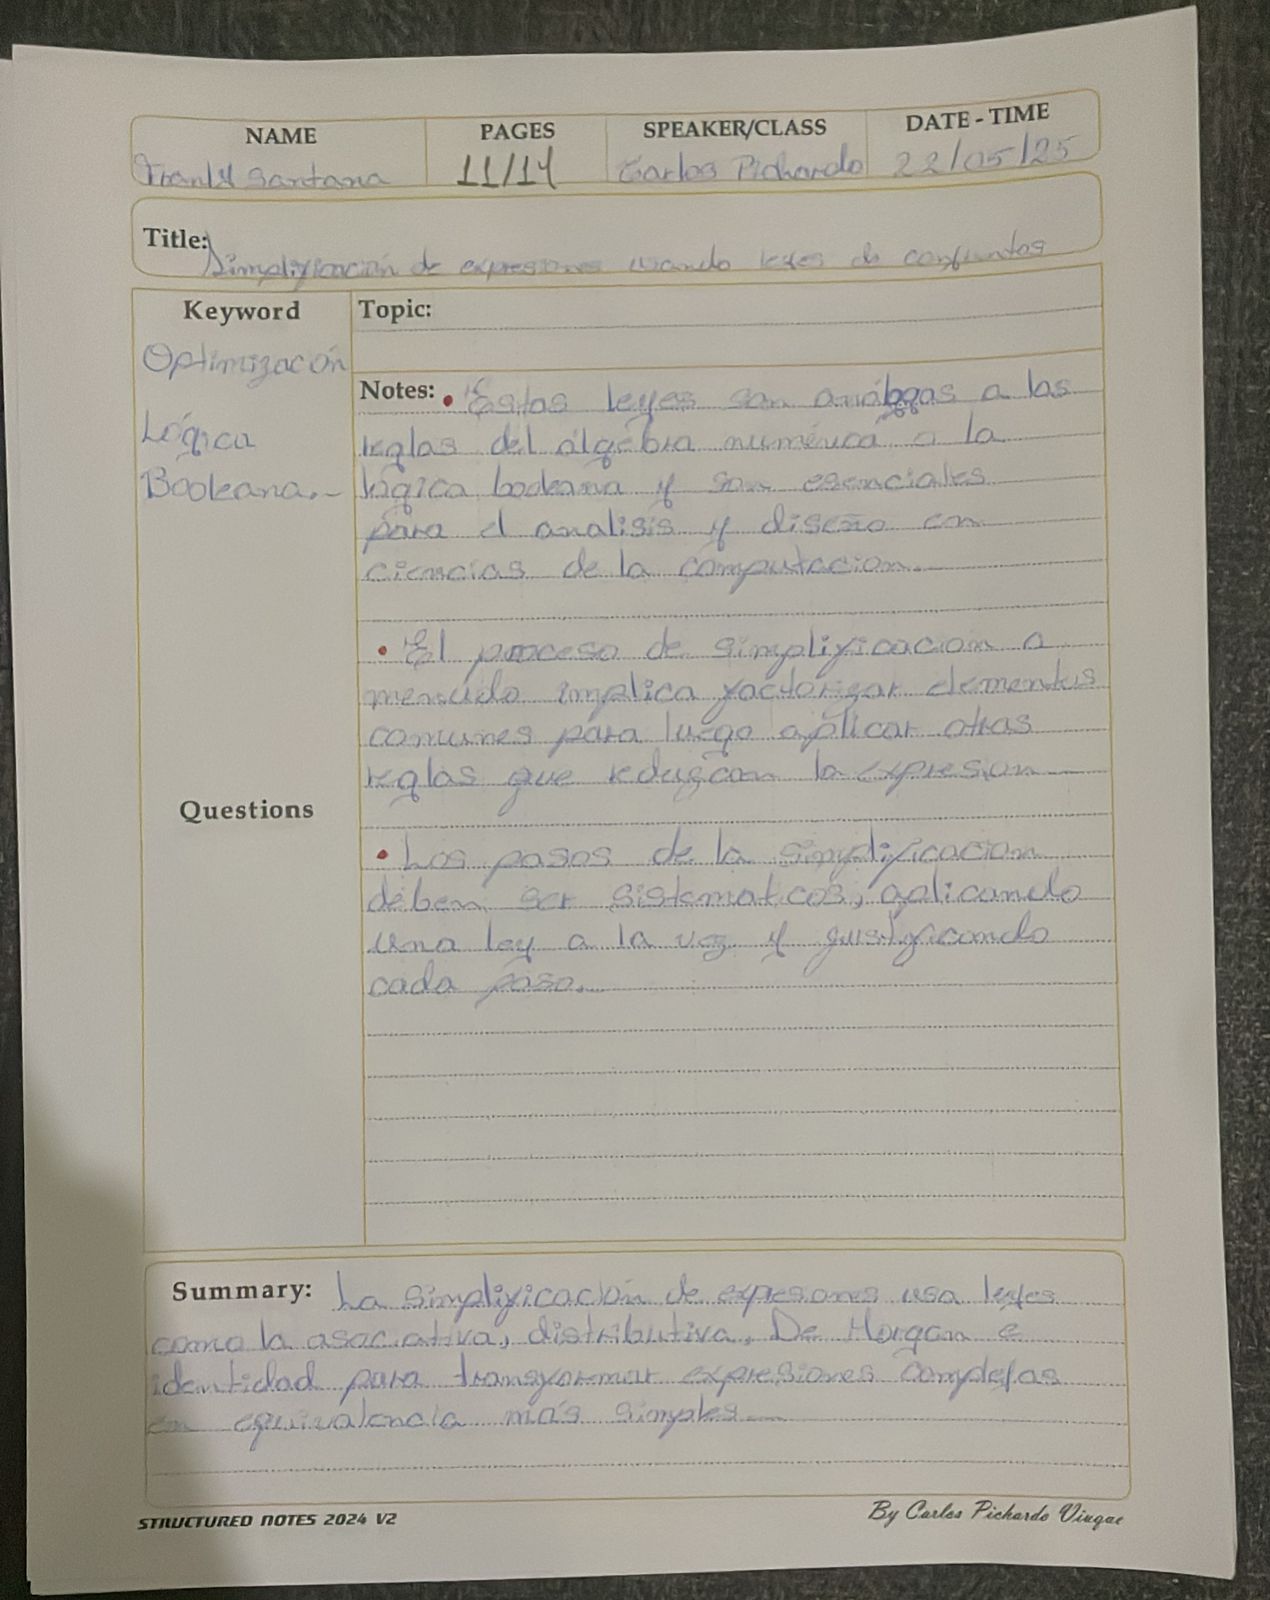 NAME PAGES SPEAKER/CLASS DATE - TIME
Santana 11/14 Carlos Pichardo 22/05/25
Title:
Simplificación de expresiones usando leyes de conjuntos
Keyword
Topic:
Optimización
Lógica
Booleana.
Notes: • Estas leyes son análogas a las
reglas del álgebra numérica o la
lógica booleana y son esenciales
para el analisis y diseño en
ciencias de la computacion.
• El proceso de simplificacion a
menudo implica factorizar elementos
comunes para luego aplicar otras
reglas que reduzcan la expresion
Questions
• Los pasos de la simplificacion
deben ser sistematicos, aplicando
una ley a la vez y justificando
cada paso.
Summary: La simplificación de expresones usa leyes
como la asociativa, distributiva, De Morgan e
identidad para transformar expresiones complejas
en equivalencia más simples
STRUCTURED NOTES 2024 V2
By Carlos Pichardo Viuque